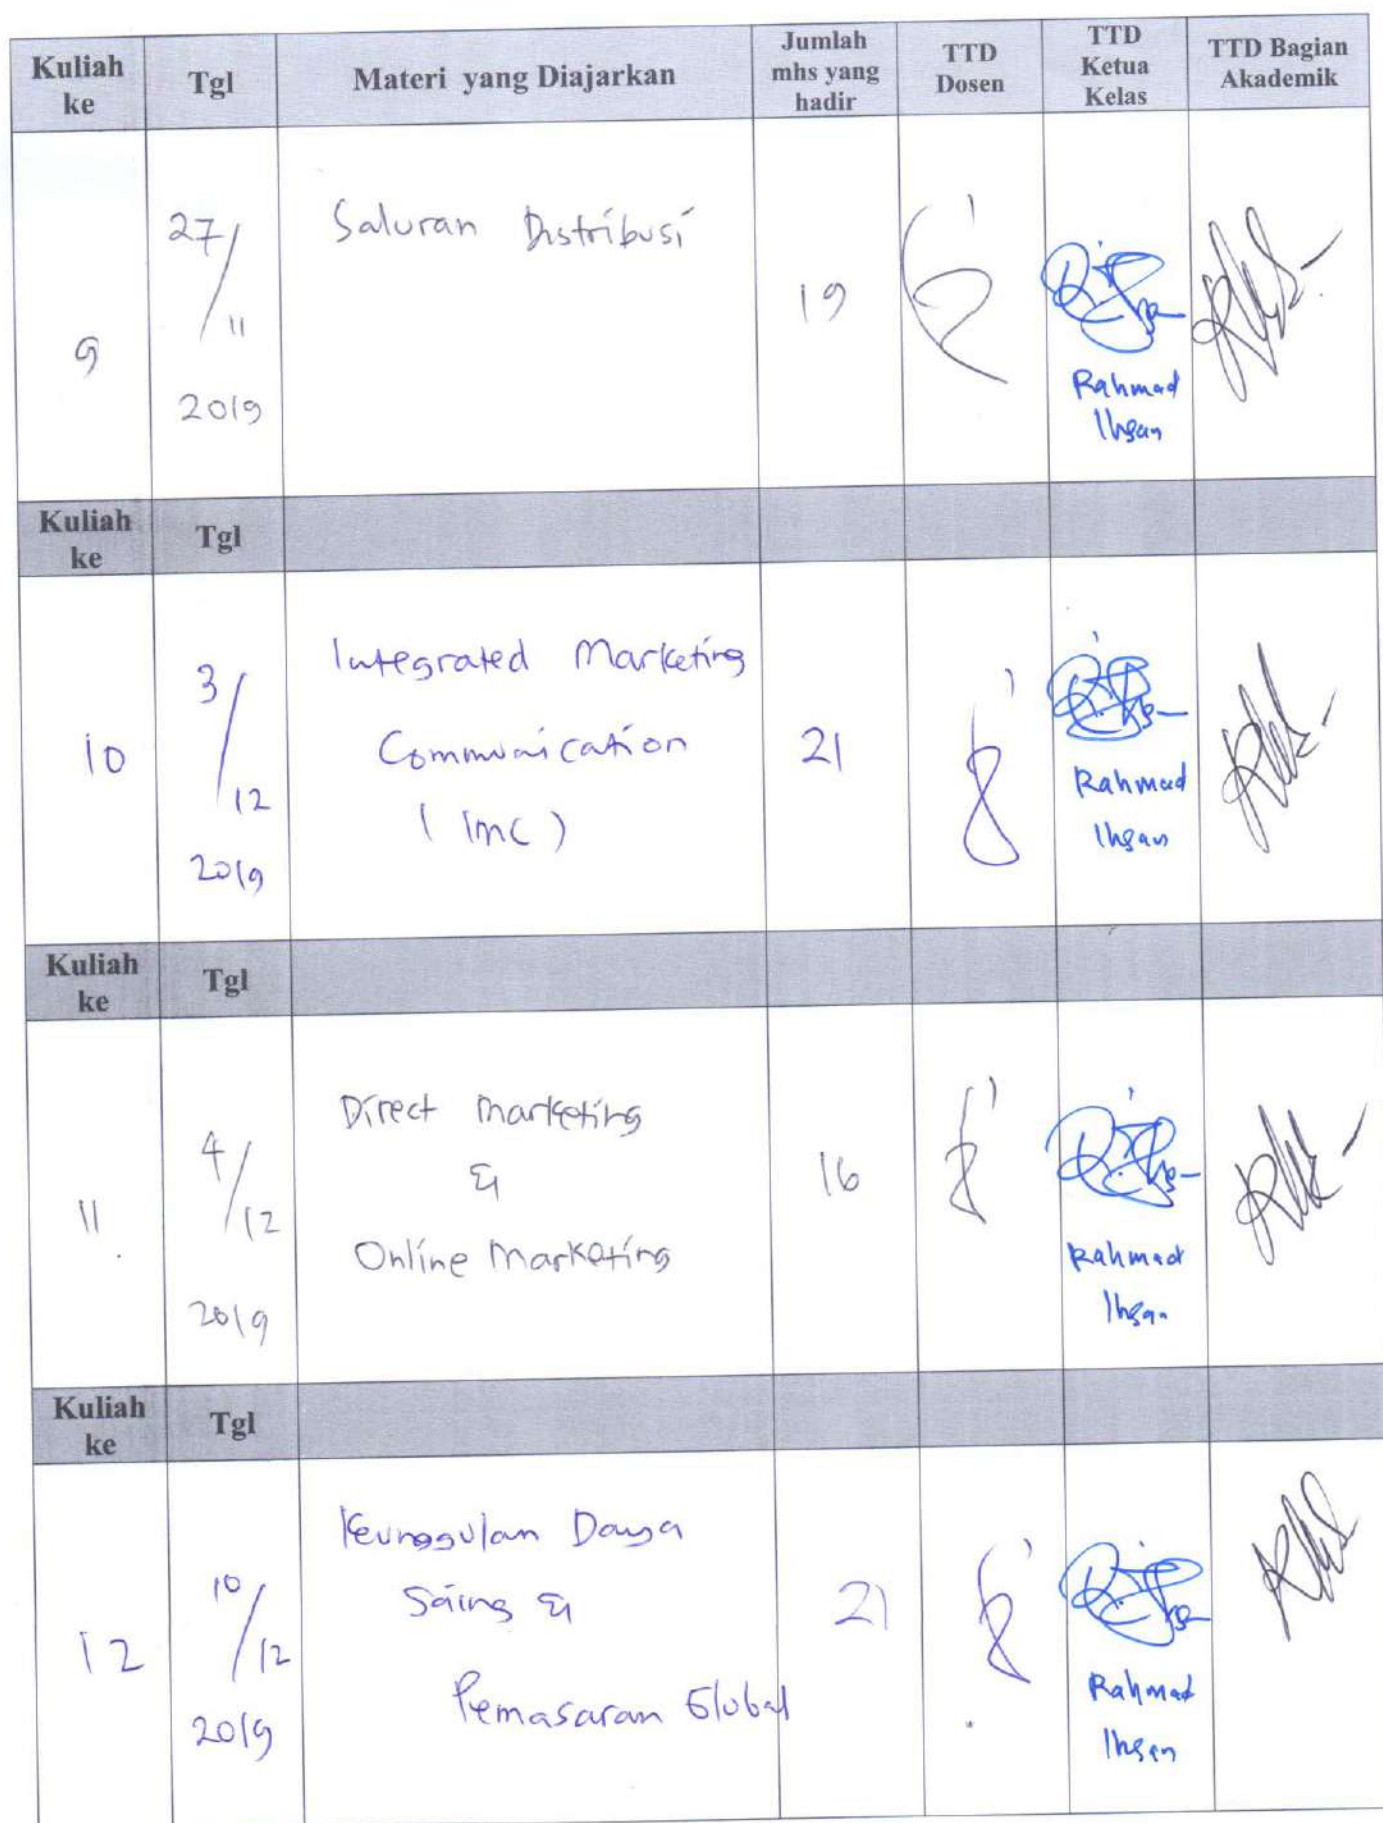 Kuliah ke Tgl Materi yang Diajarkan Jumlah mhs yang hadir TTD Dosen TTD Ketua Kelas TTD Bagian Akademik
9
27/11
2019
Saluran Distribusi
19
Rahmad
Ihsan
Kuliah ke Tgl
10
3/12
2019
Integrated Marketing
Communication
(IMC)
21
Rahmad
Ihsan
Kuliah ke Tgl
11
4/12
2019
Direct Marketing
&
Online Marketing
16
Rahmad
Ihsan
Kuliah ke Tgl
12
10/12
2019
Keunggulan Daya
Saing &
Pemasaran Global
21
Rahmad
Ihsan